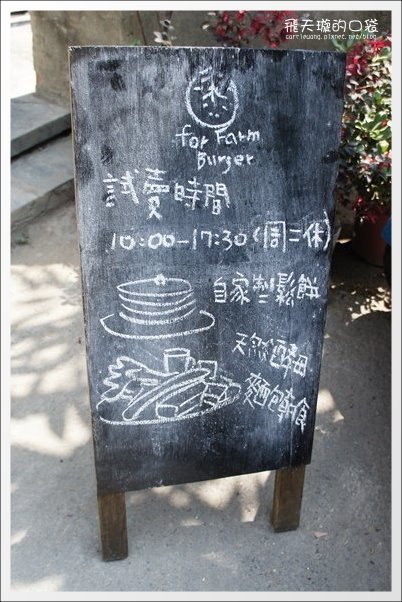 飛天璇的口袋
carrieuang.pixnet.net/blog
for Farm
Burger
試賣時間
10:00-17:30(周二休)
自家製鬆餅
天然酵母
麵包輕食